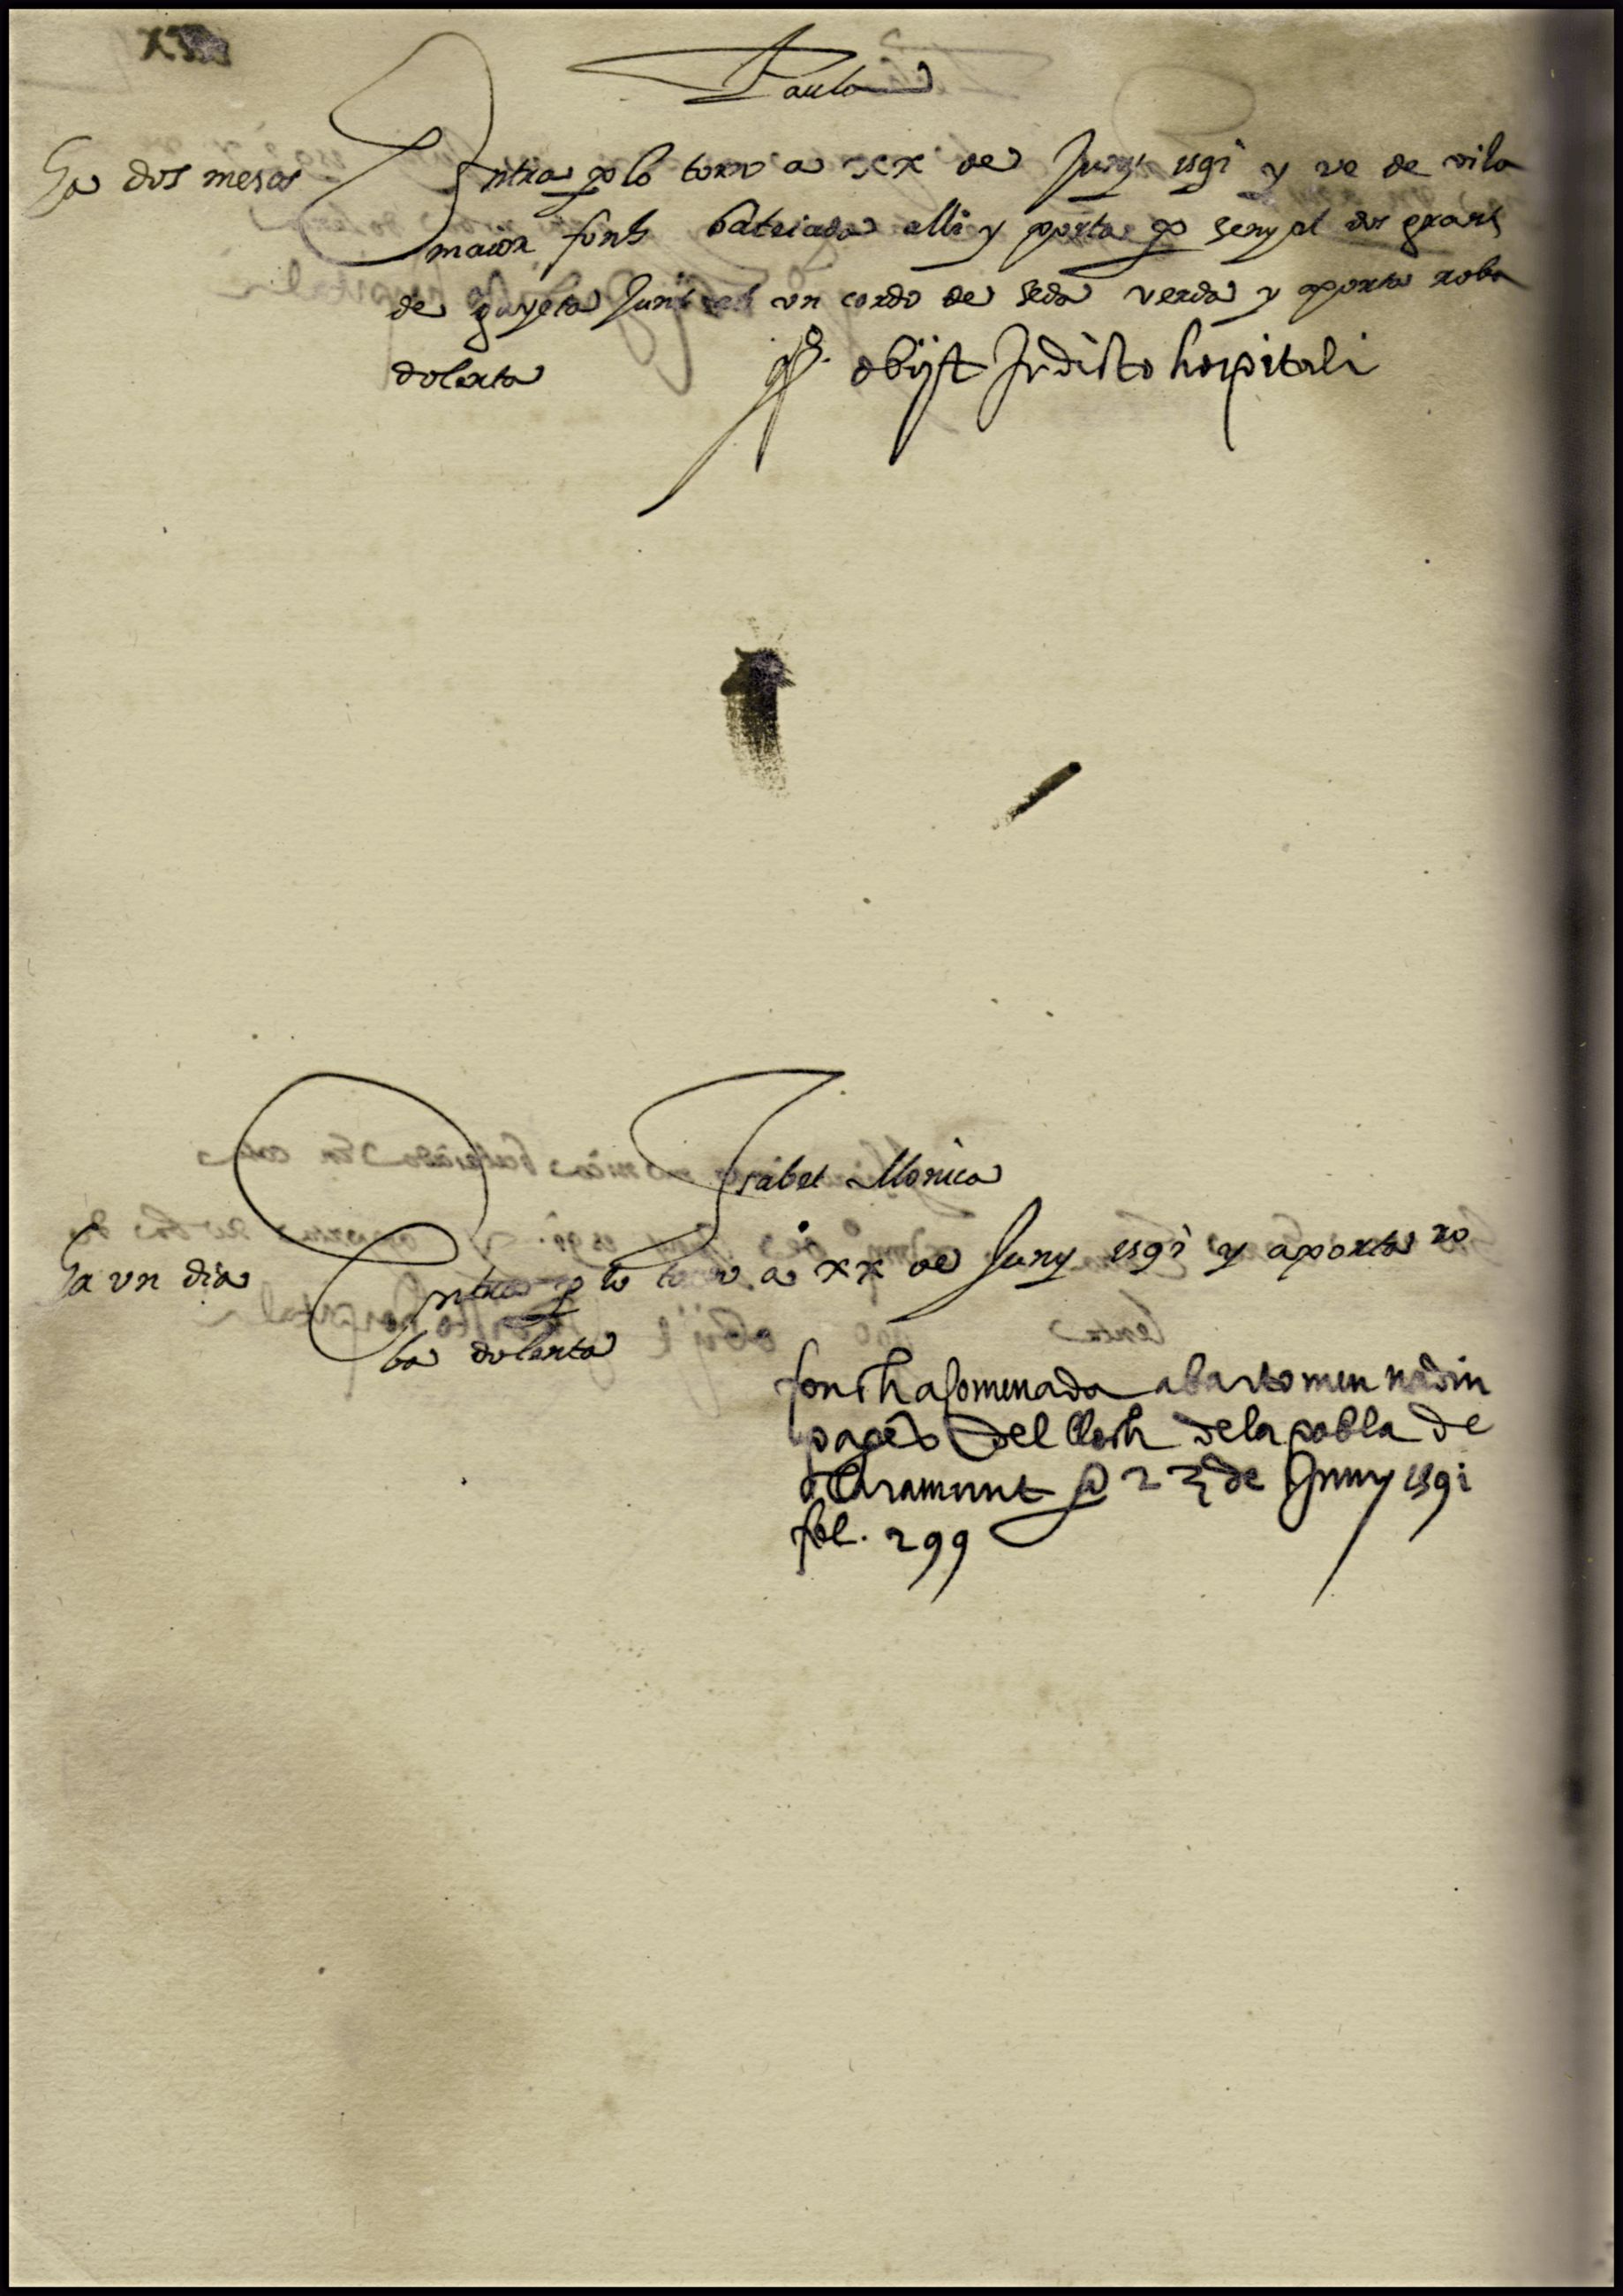 Paula
Ha dos mesos
Entra p lo torn a xx de Juny 1591 y ve de vila
maior fonh bateiada alli y aporta p senyal dos grans
de gayeta Junt ab un cordo de seda verda y aporta roba
dolenta
obijst In dicto hospitali
Isabel Monica
Ha un dia
Entra p lo torn a xx de Juny 1591 y aporta ro
ba dolenta
fonch acomenada a bartomeu nadin
pages del lloch de la pobla de
claramunt @ 23 de Juny 1591
fol. 299